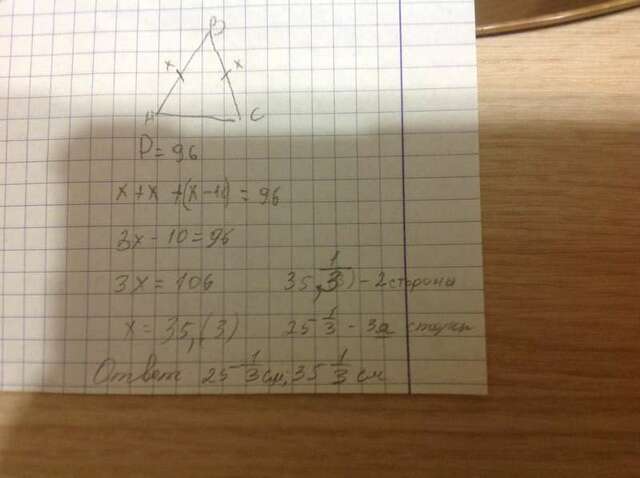 B
x x
A C
P = 96
x + x + (x - 10) = 96
3x - 10 = 96
3x = 106 35 1/3 - 2 стороны
x = 35,(3) 25 1/3 - 3я стороны
Ответ 25 1/3 см; 35 1/3 см